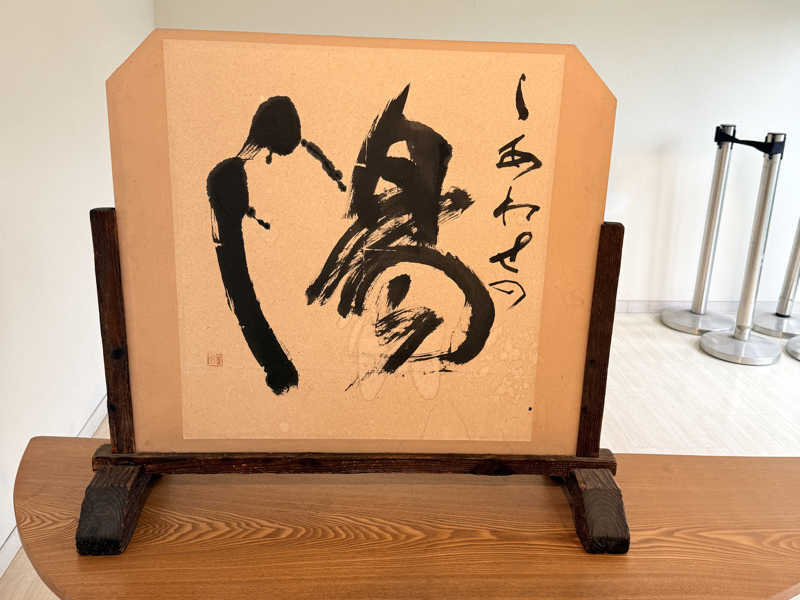 しあわせの
湯